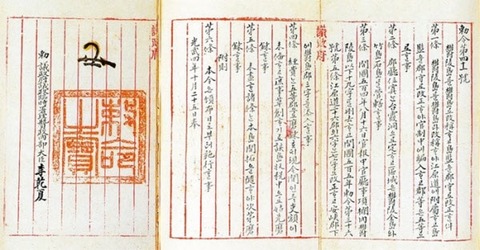 勅令第四十一號
鬱陵島를鬱島로改稱ᄒᆞ고島監을郡守로改正ᄒᆞᆫ件
第一條 鬱陵島를鬱島라改稱ᄒᆞ야江原道에附屬ᄒᆞ고
島監을郡守로改正ᄒᆞ야官制中에編入ᄒᆞ고郡等은五等으로
ᄒᆞᆯ事
第二條 郡廳位置ᄂᆞᆫ台霞洞으로定ᄒᆞ고區域은鬱陵全島와
竹島石島를管轄ᄒᆞᆯ事
第三條 開國五百四年八月十六日官報中官廳事項欄內鬱
陵島以下十九字를刪去ᄒᆞ고開國五百五年勅令第三十六
號第五條江原道二十六郡의六字ᄂᆞᆫ七字로改正ᄒᆞ고安峽郡
下에鬱島郡三字를添入ᄒᆞᆯ事
第四條 經費ᄂᆞᆫ五等郡으로磨鍊호ᄃᆡ現今間인즉吏額이
未備ᄒᆞ고庶事草創ᄒᆞ기로該島收稅中으로姑先磨
鍊ᄒᆞᆯ事
第五條 未盡ᄒᆞᆫ諸條ᄂᆞᆫ本島開拓을隨ᄒᆞ야次第磨
鍊ᄒᆞᆯ事
附則
第六條 本令은頒布日로붓터施行ᄒᆞᆯ事
光武四年十月二十五日奉
勅命之寶
勅 議政府議政臨時署理贊政內部大臣李乾夏
議政府
議政府